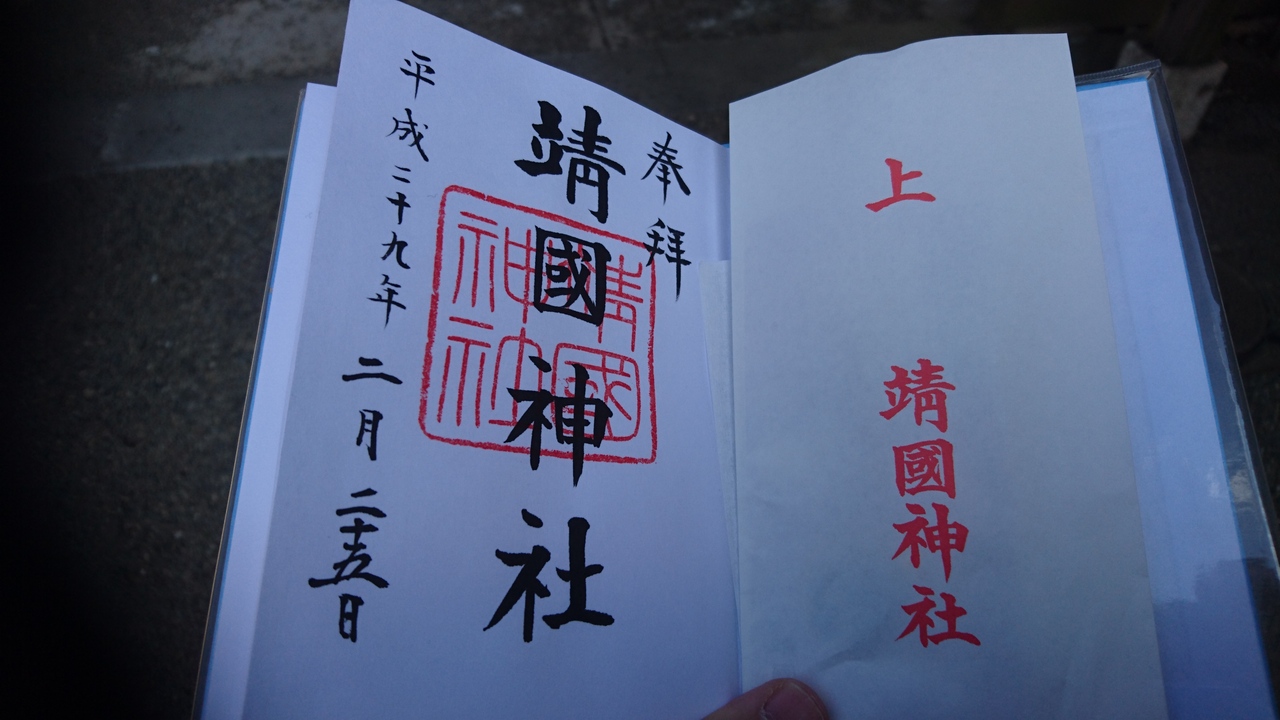 奉拝
靖國神社
平成二十九年二月二十五日
靖國神社
上
靖國神社